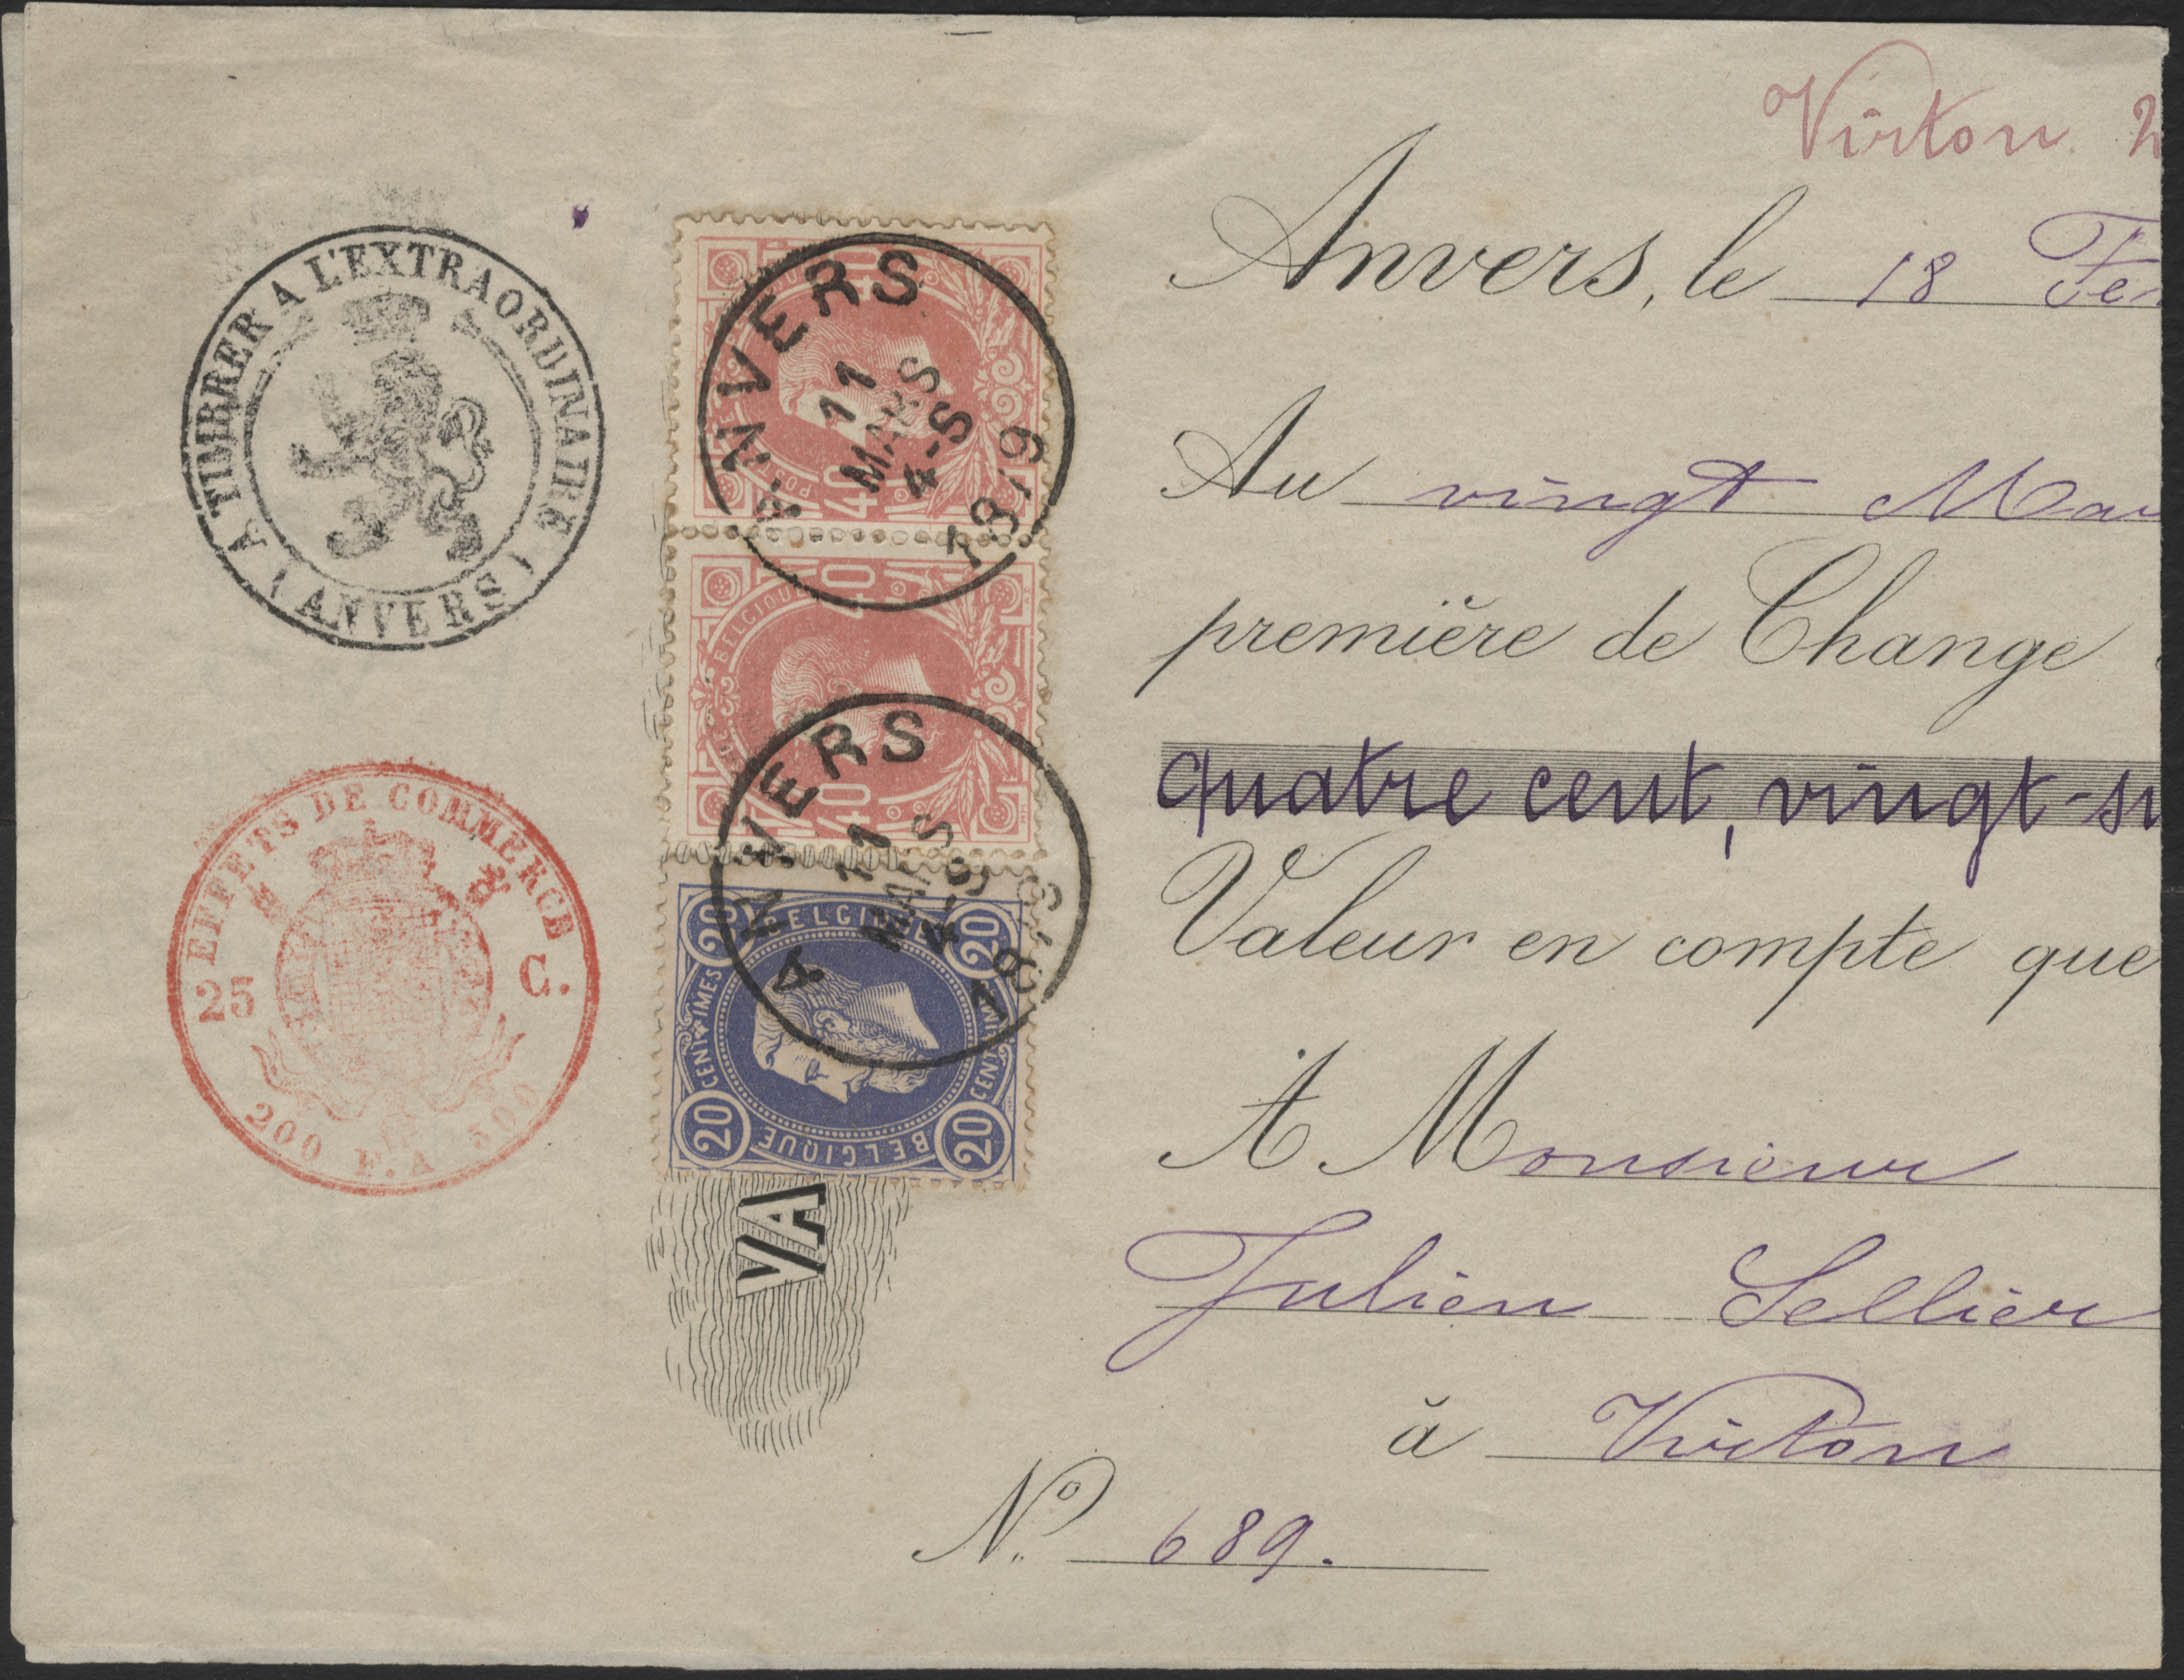 Virton
Anvers, le 18
Au vingt
première de Change
quatre cent, vingt-
Valeur en compte que
A Monsieur
Julien Sellier
à Virton
No. 689.
A TIMBRER A L'EXTRAORDINAIRE
(ANVERS)
EFFETS DE COMMERCE
25 C.
200 F. A 500
ANVERS
11
MARS
4-S
1879
40 40
POSTES
BELGIQUE
40 40
ANVERS
11
MARS
4-S
1879
20 BELGIQUE 20
CENTIMES
CENTIMES
20 BELGIQUE 20
VA